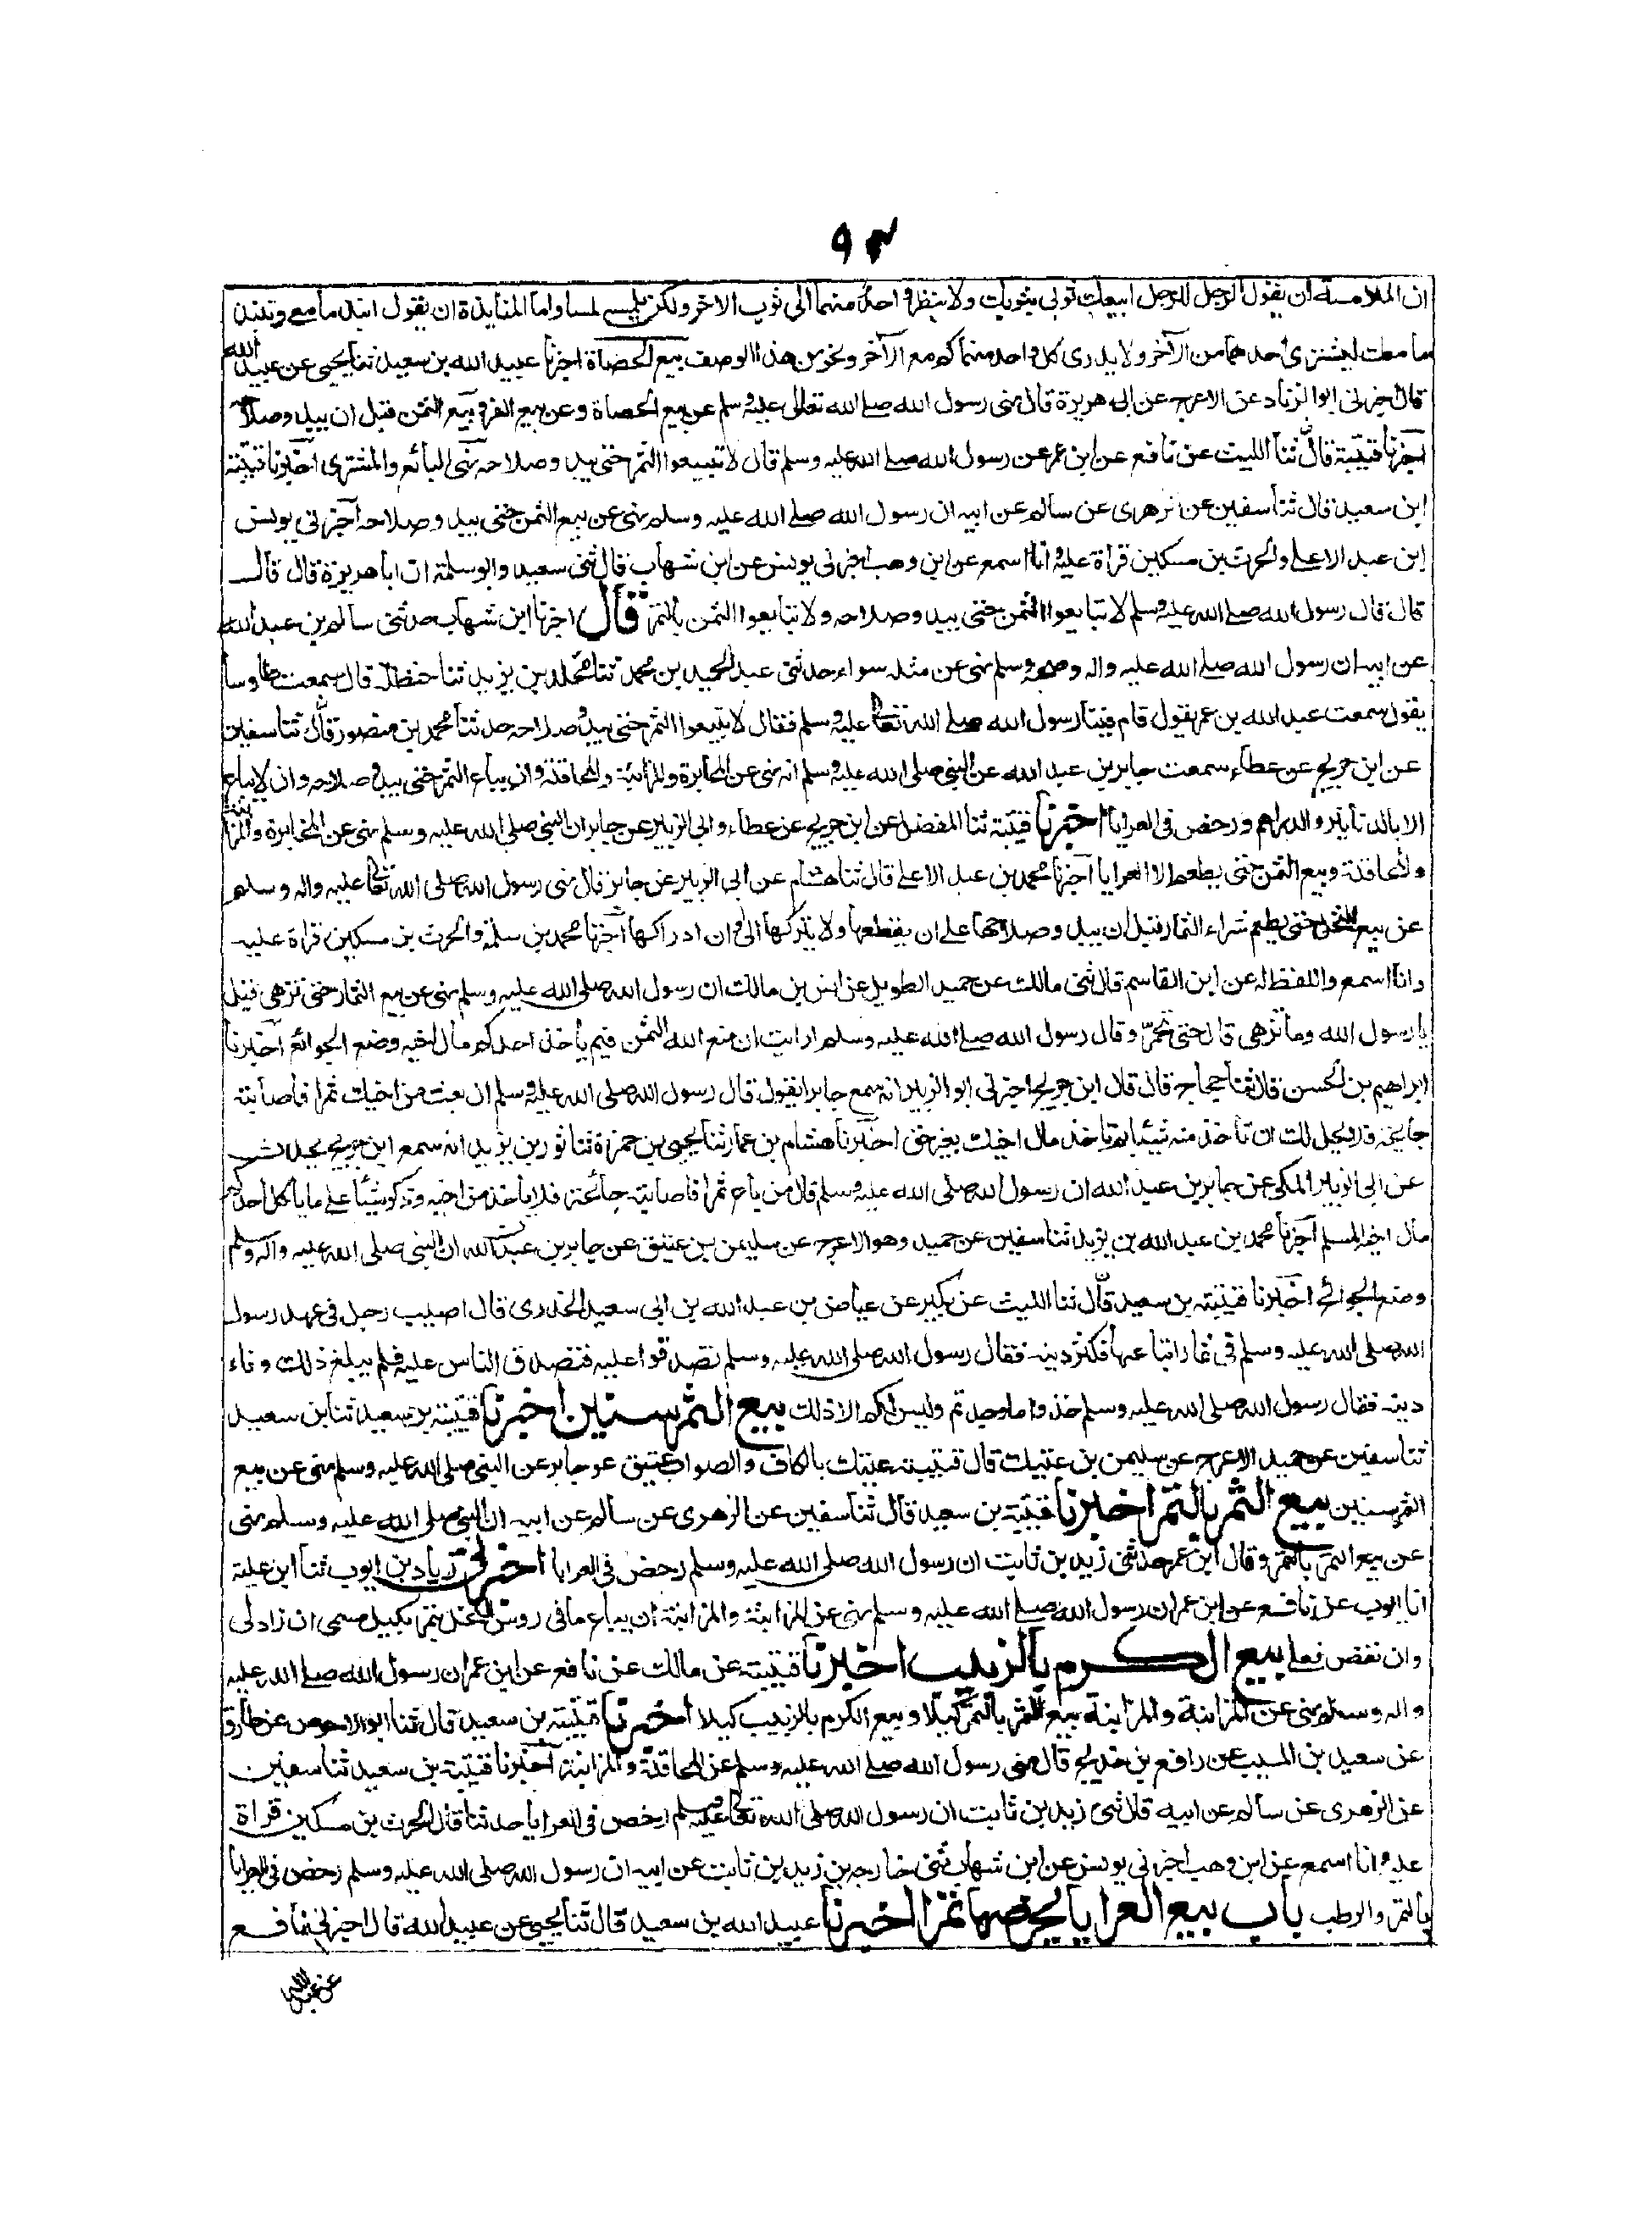 ٩٣
ان الملامسة ان يقول الرجل للرجل ابيعك ثوبى بثوبك ولا ينظر واحد منهما الى ثوب الاخر ولكن يلمسه لمسا واما المنابذة ان يقول انبذ ما معى وتنبذ
ما معك ليشترى احدهما من الآخر ولا يدرى كل واحد منهما كم مع الآخر ونحو من هذا الوصف بيع الحصاة اخبرنا عبيد الله بن سعيد ثنا يحيى عن عبيد الله
قال اخبرنى ابو الزناد عن الاعرج عن ابى هريرة قال نهى رسول الله صلے الله تعالى عليه وسلم عن بيع الحصاة وعن بيع الغرر بيع الثمر قبل ان يبدو صلاحه
اخبرنا قتيبة قال ثنا الليث عن نافع عن ابن عمر عن رسول الله صلے الله عليه وسلم قال لا تبيعوا الثمر حتى يبدو صلاحه نهى البائع والمشترى اخبرنا قتيبة
ابن سعيد قال ثنا سفين عن زهرى عن سالم عن ابيه ان رسول الله صلے الله عليه وسلم نهى عن بيع الثمر حتى يبدو صلاحه اخبرنى يونس
ابن عبد الاعلے والحرث بن مسكين قراة عليه وانا اسمع عن ابن وهب اخبرنى يونس عن ابن شهاب قال ثنى سعيد وابو سلمة ان ابا هريرة قال قال
قال قال رسول الله صلے الله عليه وسلم لا تبايعوا الثمر حتى يبدو صلاحه ولا تبايعوا الثمر بالتمر قال اخبرنا ابن شهاب حدثنى سالم بن عبد الله
عن ابيه ان رسول الله صلے الله عليه واله وصحبه وسلم نهى عن مثله سواء حدثنى عبد الحميد بن محمد ثنا مخلد بن يزيد ثنا حنظلة قال سمعت طاوسا
يقول سمعت عبد الله بن عمر يقول قام فينا رسول الله صلے الله تعالى عليه وسلم فقال لا تبيعوا الثمر حتى يبدو صلاحه حدثنا محمد بن منصور قال ثنا سفين
عن ابن جريج عن عطاء سمعت جابر بن عبد الله عن النبى صلى الله عليه وسلم انه نهى عن المخابرة والمزابنة والمحاقلة وان يباع الثمر حتى يبدو صلاحه وان لا يباع
الا بالدنانير والدراهم ورخص فى العرايا اخبرنا قتيبة ثنا المفضل عن ابن جريج عن عطاء وابى الزبير عن جابر ان النبى صلى الله عليه وسلم نهى عن المخابرة والمزابنة
والمحاقلة وبيع الثمر حتى يطعم الا العرايا اخبرنا محمد بن عبد الاعلے قال ثنا هشام عن ابى الزبير عن جابر قال نهى رسول الله صلى الله تعالى عليه واله وسلم
عن بيع النخل حتى يطعم شراء الثمار قبل ان يبدو صلاحها على ان يقطعها ولا يتركها الى اوان ادراكها اخبرنا محمد بن سلمة والحرث بن مسكين قراة عليه
وانا اسمع واللفظ له عن ابن القاسم قال ثنى مالك عن حميد الطويل عن انس بن مالك ان رسول الله صلى الله عليه وسلم نهى عن بيع الثمار حتى تزهى قيل
يا رسول الله وما تزهى قال حتى تحمر وقال رسول الله صلے الله عليه وسلم ارايت ان منع الله الثمر فبم ياخذ احدكم مال اخيه وضع الجوائح اخبرنا
ابراهيم بن الحسن قال ثنا حجاج قال قال ابن جريج اخبرنى ابو الزبير انه سمع جابرا يقول قال رسول الله صلى الله عليه وسلم ان بعت من اخيك ثمرا فاصابته
جايحة فلا يحل لك ان تاخذ منه شيئا بم تاخذ مال اخيك بغير حق اخبرنا هشام بن عمار ثنا يحيى بن حمزة ثنا ثور بن يزيد انه سمع ابن جريج يحدث
عن ابى الزبير المكى عن جابر بن عبد الله ان رسول الله صلى الله عليه وسلم قال من باع ثمرا فاصابته جائحة فلا ياخذ من اخيه وذكر شيئا على ما ياكل احدكم
مال اخيه المسلم اخبرنا محمد بن عبد الله بن يزيد ثنا سفين عن حميد وهو الاعرج عن سليمن بن عتيق عن جابر بن عبد الله ان النبى صلى الله عليه واله وسلم
وضع الجوائح اخبرنا قتيبة بن سعيد قال ثنا الليث عن بكير عن عياض بن عبد الله بن ابى سعيد الخدرى قال اصيب رجل فى عهد رسول
الله صلى الله عليه وسلم فى ثمار ابتاعها فكثر دينه فقال رسول الله صلى الله عليه وسلم تصدقوا عليه فتصدق الناس عليه فلم يبلغ ذلك وفاء
دينه فقال رسول الله صلى الله عليه وسلم خذوا ما وجدتم وليس لكم الا ذلك بيع الثمر سنين اخبرنا قتيبة بن سعيد ثنا بن سعيد
ثنا سفين عن حميد الاعرج عن سليمن بن عتيك قال قتيبة عتيك بالكاف والصواب عتيق عن جابر عن النبى صلى الله عليه وسلم نهى عن بيع
الثمر سنين بيع الثمر بالتمر اخبرنا قتيبة بن سعيد قال ثنا سفين عن الزهرى عن سالم عن ابيه ان النبى صلى الله عليه وسلم نهى
عن بيع الثمر بالتمر وقال ابن عمر حدثنى زيد بن ثابت ان رسول الله صلى الله عليه وسلم رخص فى العرايا اخبرنى زياد بن ايوب ثنا ابن علية
انا ايوب عن نافع عن ابن عمر ان رسول الله صلے الله عليه وسلم نهى عن المزابنة والمزابنة ان يباع ما فى روس النخل بتمر بكيل مسمى ان زاد لى
وان نقص فعلى بيع الكرم بالزبيب اخبرنا قتيبة عن مالك عن نافع عن ابن عمر ان رسول الله صلے الله عليه
واله وسلم نهى عن المزابنة والمزابنة بيع الثمر بالتمر كيلا وبيع الكرم بالزبيب كيلا اخبرنا قتيبة بن سعيد قال ثنا ابو الاحوص عن طارق
عن سعيد بن المسيب عن رافع بن خديج قال نهى رسول الله صلے الله عليه وسلم عن المحاقلة والمزابنة اخبرنا قتيبة بن سعيد ثنا سفين
عن الزهرى عن سالم عن ابيه قال ثنى زيد بن ثابت ان رسول الله صلى الله تعالى عليه وسلم ارخص فى العرايا حدثنا قال الحرث بن مسكين قراة
عليه وانا اسمع عن ابن وهب اخبرنى يونس عن ابن شهاب ثنى خارجه بن زيد بن ثابت عن ابيه ان رسول الله صلى الله عليه وسلم رخص فى العرايا
بالتمر والرطب باب بيع العرايا بخرصها تمرا اخبرنا عبيد الله بن سعيد قال ثنا يحيى عن عبيد الله قال اخبرنى نافع
عن عبد الله